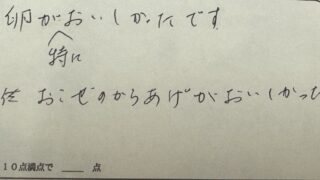 卵がおいしかったです
特に
おこぜのからあげがおいしかった
10点満点で 点